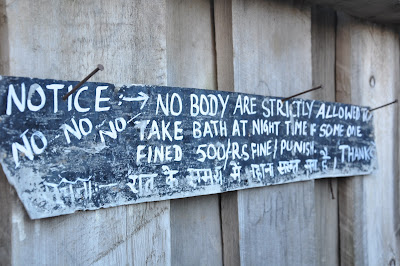 NOTICE :→ NO BODY ARE STRICTLY ALLOWED TO
NO NO NO TAKE BATH AT NIGHT TIME IF SOME ONE
FINED 500/RS FINE/PUNISH. / THANKS
:- रात के समय में नहाना सख्त मना है।